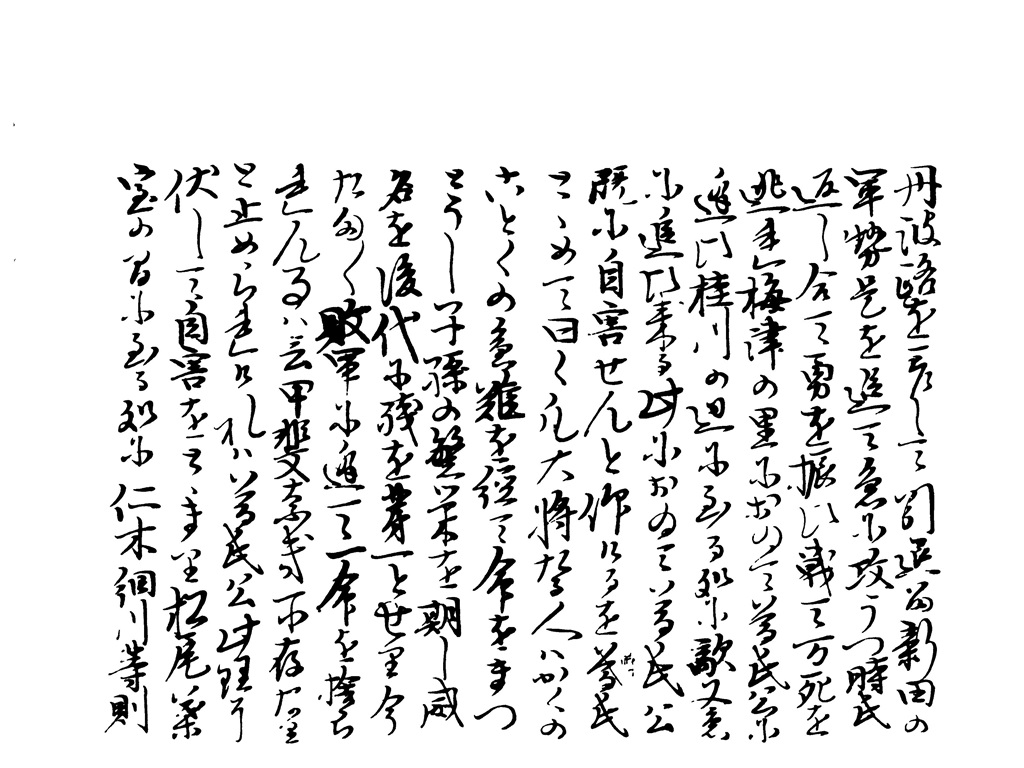 丹波路を差して引退く処新田の
軍勢是を追て急に攻うつ時氏
返し合て勇を振ひ戦て万死を
逃れ出梅津の里におゐて尊氏公に
逢ひ桂川の辺に至る処に敵又急
に進ひ来る此におゐて尊氏公
既に自害せんと仰けるを尊氏
とゝめて曰く凡大将たる人はかくの
ことくの危難を経て命をまつ
とうし子孫の繁栄を期し威
名を後代に残を専一とせり今
たまたま敗軍に逢て一命を捨ら
れんるは言甲斐なき所存なり
と止められけれは尊氏公此理に
伏して自害をとゝまり松尾葉
室の間に至る処に仁木細川等則